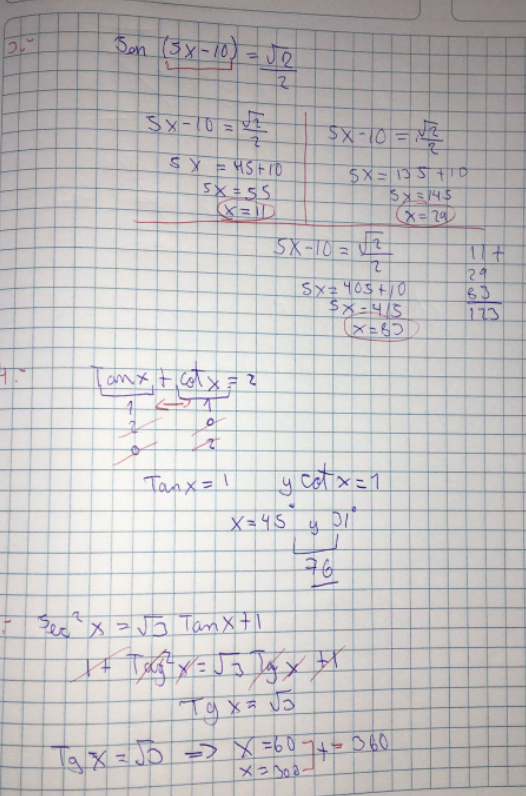 3.-
Sen (5x-10) = √2/2
5x-10 = √2/2
5x = 45+10
5x = 55
x = 11
5x-10 = √2/2
5x = 135 + 10
5x = 145
x = 29
5x-10 = √2/2
5x = 405+10
5x = 415
x = 83
11 +
29
83
123
4.-
Tanx + cotx = 2
1 ↔ 1
2 0
0 2
Tanx = 1 y cotx = 1
x = 45° y 31°
76
Sec² x = √3 Tanx+1
1 + Tag²x = √3 Tgx +1
Tg x = √3
Tg x = √3 => x = 60 +- 360
x = 300